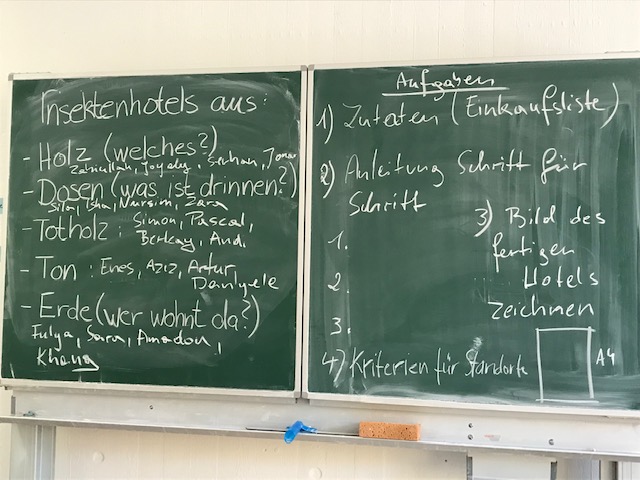 Insektenhotels aus:
- Holz (welches?)
Zabiullah, Joyely, Seuhan, Jona
- Dosen (was ist drinnen?)
Sila, Isha, Nursim, Zara
- Totholz: Simon, Pascal,
Berkay, Andi
- Ton: Enes, Aziz, Artur,
Danyele
- Erde (wer wohnt da?)
Fulya, Sara, Amadou,
Khang
Aufgaben
1) Zutaten (Einkaufsliste)
2) Anleitung Schritt für
Schritt
1.
2.
3.
3) Bild des
fertigen
Hotels
zeichnen
A4
4) Kriterien für Standorte